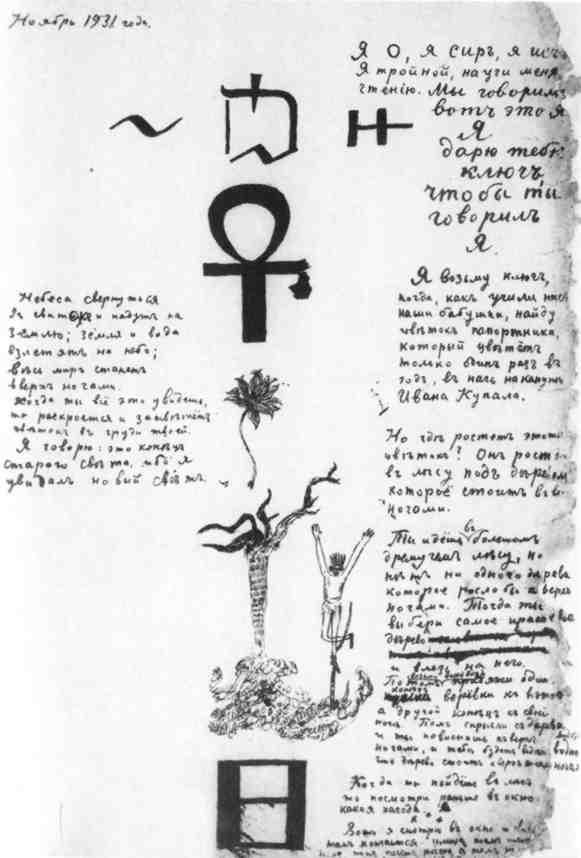 Ноябрь 1931 года.
Я О, я Сиръ, я ис
Я тройной, научи меня
чтенію. Мы говоримъ
вотъ это я
Я
дарю тебѣ
ключъ
чтобы ты
говорилъ
Я.
Я возьму ключъ,
когда, какъ учили насъ
наши бабушки, найду
цвѣтокъ папоротника,
который цвѣтётъ
только одинъ разъ въ
годъ, въ ночь наканунѣ
Ивана Купала.
Но гдѣ ростетъ этотъ
цвѣтокъ? Онъ росте
въ лѣсу подъ деревом
которое стоитъ вв
ногами.
Ты идёшь въ большомъ
дремучій лѣсу, но
нѣтъ ни одного дерева
которое росло бы вверхъ
ногами. Тогда ты
выбери самое красивое
дерево
и влезь на него.
Потомъ возьми одинъ
конецъ верёвки къ
а другой конецъ къ своей
ногѣ. Потомъ спрыгни съ дерева
и ты повиснешь кверхъ
ногами, и тебѣ будетъ видно
что дерево стоитъ кверхъ ногами
Когда ты пойдёшь въ лѣсъ
то посмотри раньше въ окно
какая погода.
Вотъ я смотрю въ окно и вижу
тамъ кончается улица
Небеса свернутся
въ свитокъ и падутъ на
Землю; земля и вода
взлетятъ на небо;
весь міръ станетъ
вверхъ ногами.
Когда ты всё это увидешь,
то раскроется и зацвѣтётъ
цвѣтокъ въ груди твоей.
Я говорю: это конецъ
старого свѣта, ибо я
увидалъ новый свѣтъ.